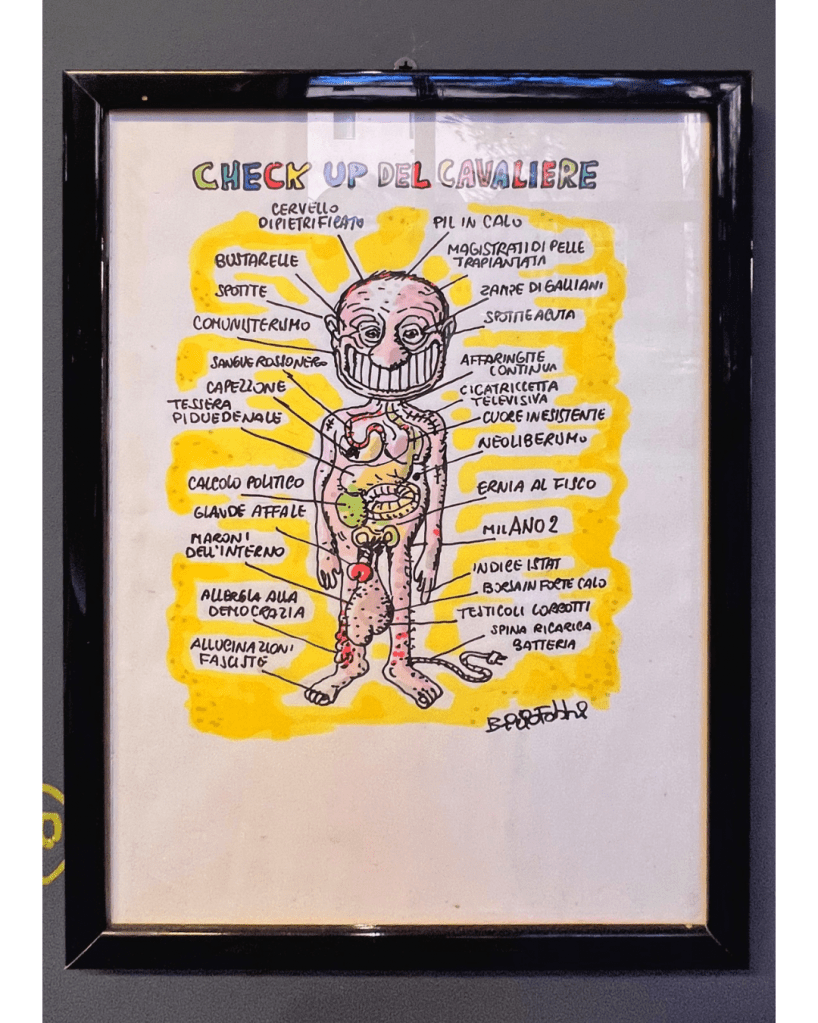 CHECK UP DEL CAVALIERE
CERVELLO
DIPIETRIFICATO
BUSTARELLE
SPOTITE
COMUNISTERISMO
SANGUE ROSSONERO
CAPEZZONE
TESSERA
PIDUEDENALE
CALCOLO POLITICO
GLANDE AFFALE
MARONI
DELL'INTERNO
ALLERGIA ALLA
DEMOCRAZIA
ALLUCINAZIONI
FASCISTE
PIL IN CALO
MAGISTRATI DI PELLE
TRAPIANTATA
ZAMPE DI GALLIANI
SPOTITE ACUTA
AFFARINGITE
CONTINUA
CICATRICCETTA
TELEVISIVA
CUORE INESISTENTE
NEOLIBERISMO
ERNIA AL FISCO
MILANO 2
INDICE ISTAT
BORSA IN FORTE CALO
TESTICOLI CORROTTI
SPINA RICARICA
BATTERIA